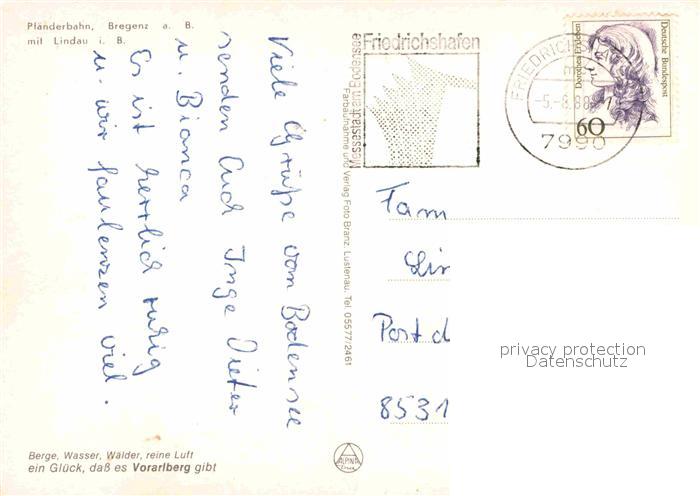 Pfänderbahn, Bregenz a. B.
mit Lindau i. B.
Viele Grüße vom Bodensee
senden Euch Inge Dieter
u. Bianca
Es ist herrlich ruhig
u. wir faulenzen viel.
Berge, Wasser, Wälder, reine Luft
ein Glück, daß es Vorarlberg gibt
Farbaufnahme und Verlag Foto Branz, Lustenau, Tel. 05577/2461
ALPINA
Messestadt am Bodensee
Friedrichshafen
FRIEDRICHSHAFEN
-5.-8.88
7990
Deutsche Bundespost
60
Fam
Lin
Post d
8531
privacy protection
Datenschutz